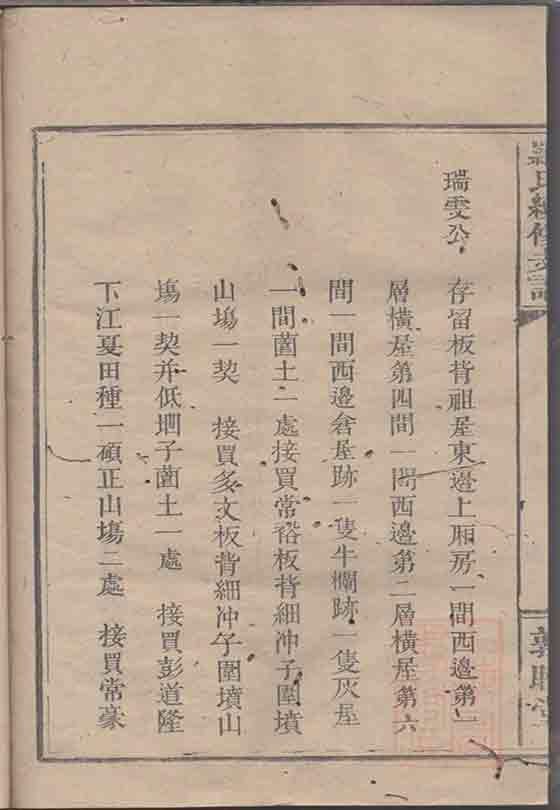 氏續修支譜
瑞雯公
存留板背祖屋東邊上廂房一間西邊第一
層橫屋第四間一間西邊第二層橫屋第六
間一間西邊倉屋跡一隻牛欄跡一隻灰屋
一間菌土二處接買常裕板背細冲子圍墳
山塲一契 接買多文板背細冲子圍墳山
塲一契并低堋子菌土一處 接買彭道隆
下江夏田種一碩正山塲二處 接買常豪